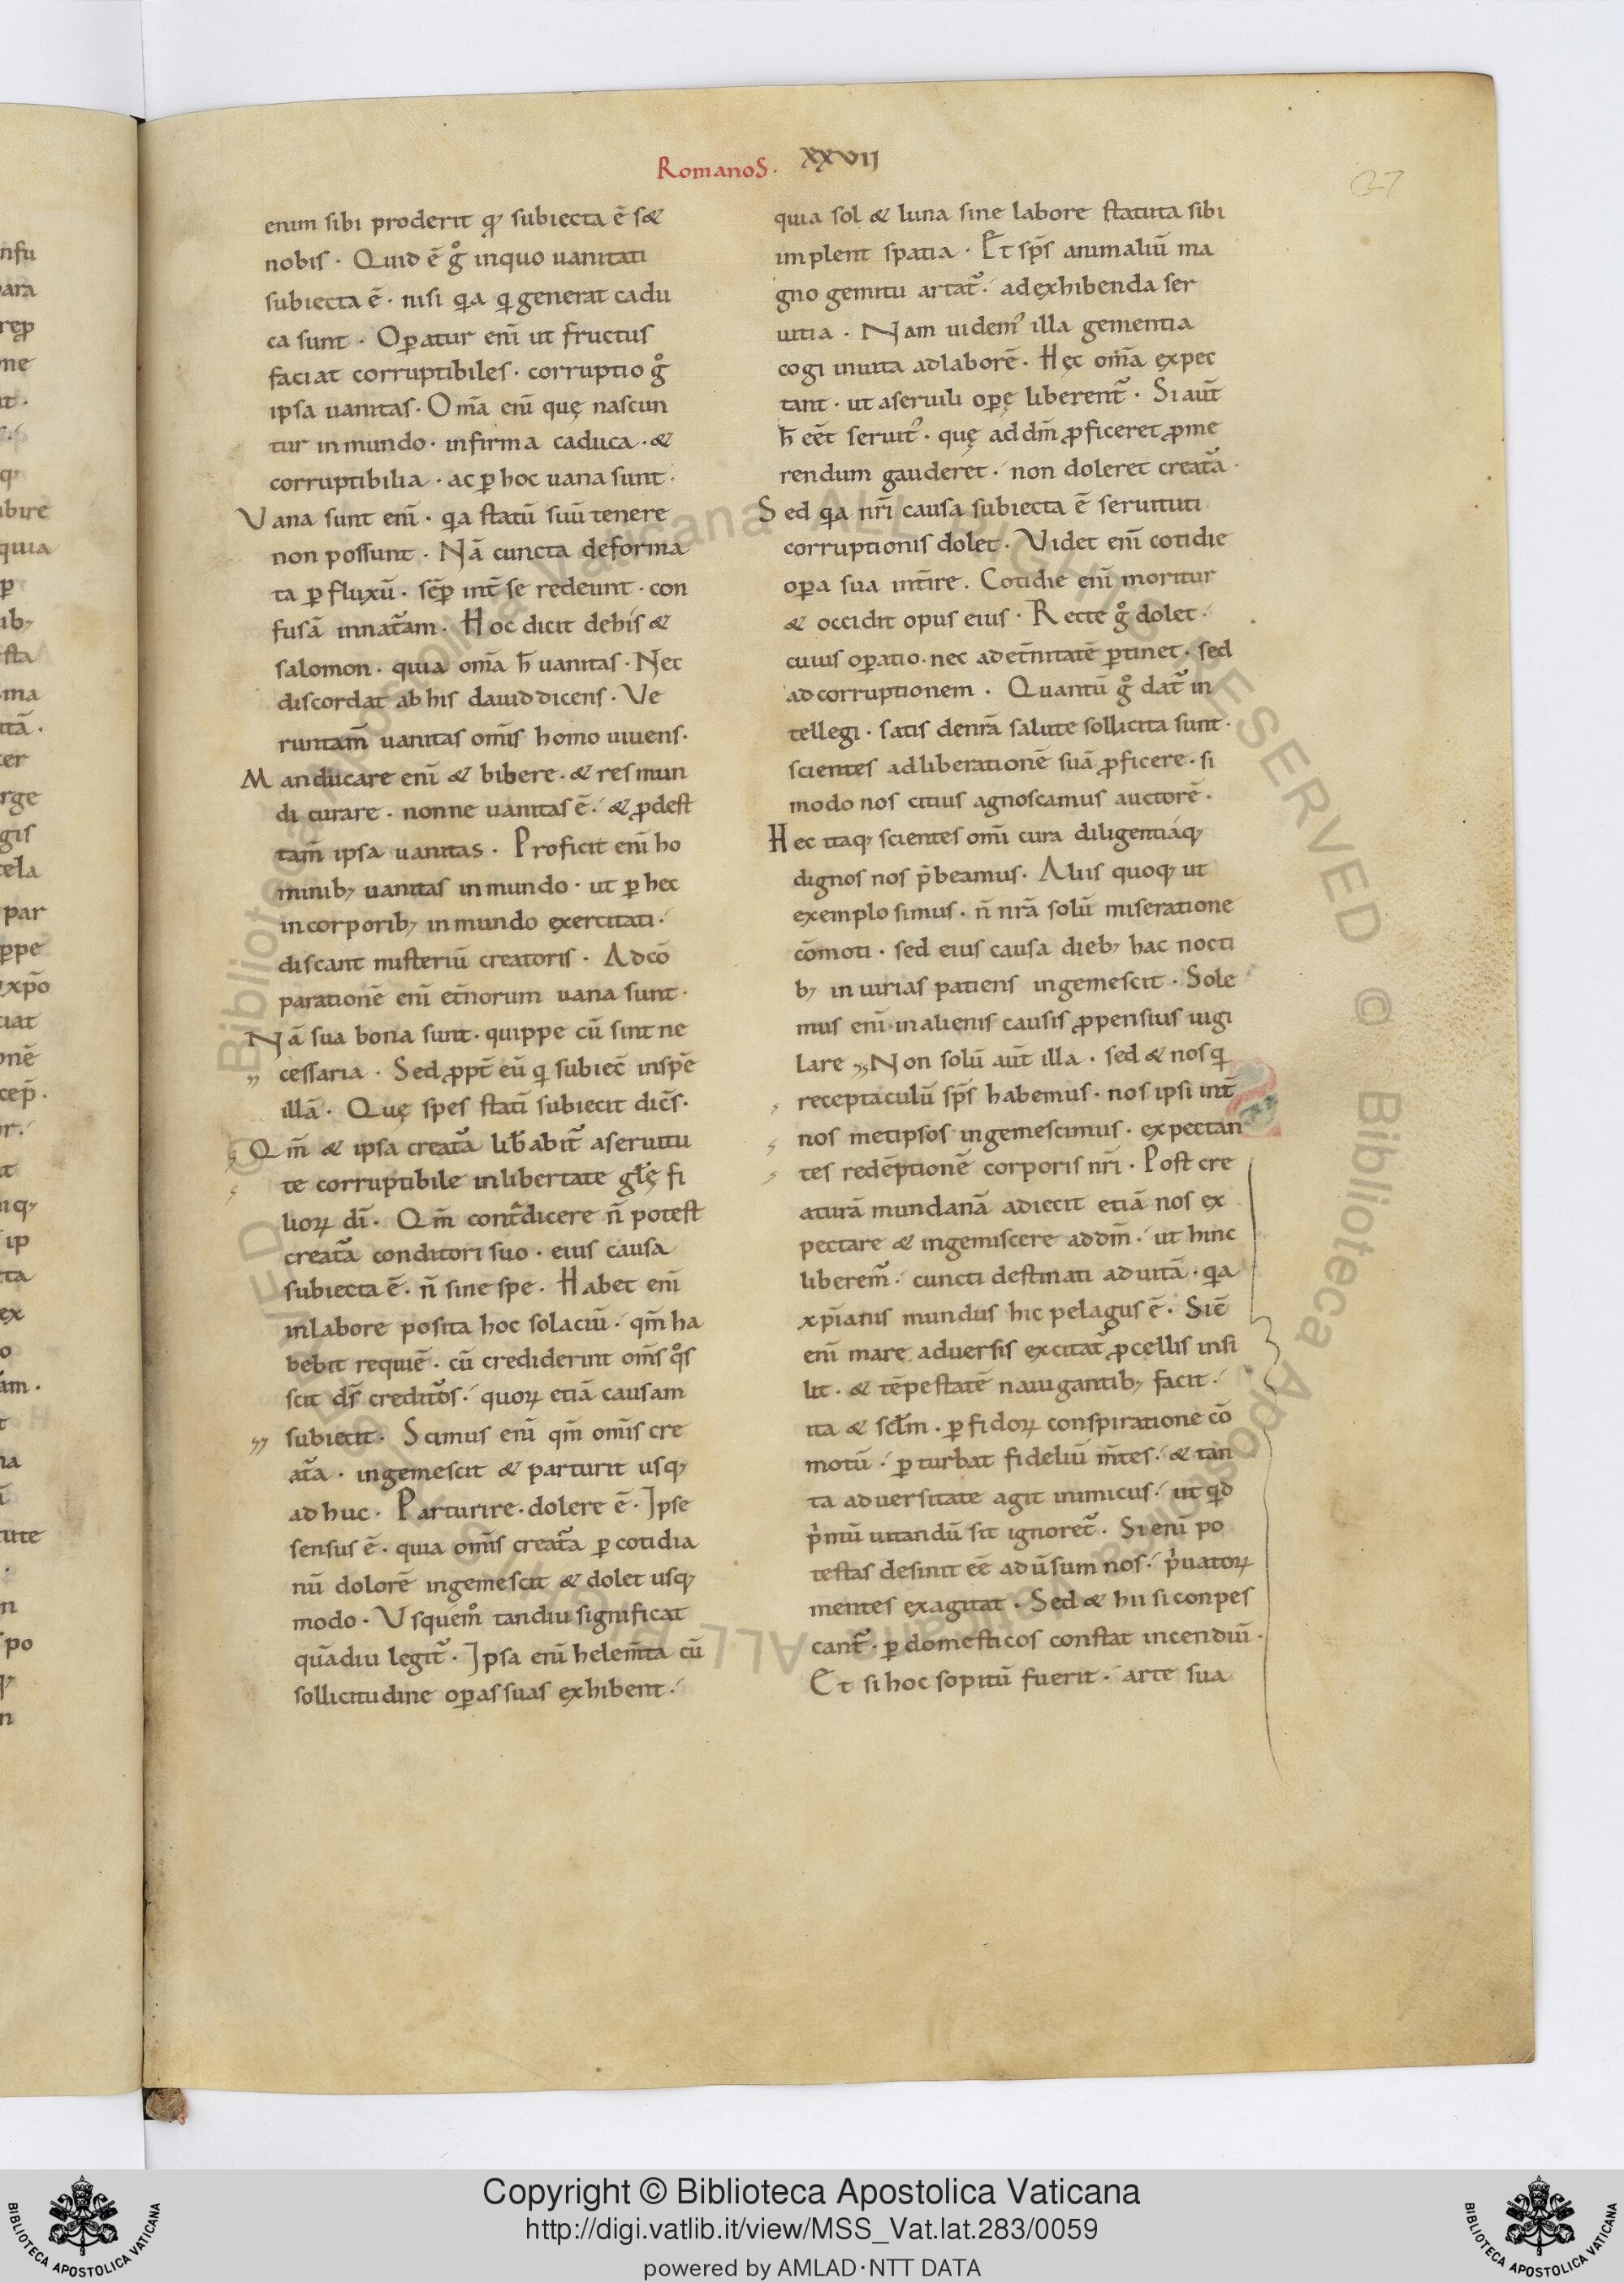 Romanos. xxvij
27
enim sibi proderit qꝫ subiecta ē sꝫ &
nobis · Quid ē g̊ inquo uanitati
subiecta ē · nisi qa q generat cadu
ca sunt · Oꝑatur eni̅ ut fructus
faciat corruptibiles · corruptio g̊
ipsa uanitas · Om̅a eni̅ quę nascun
tur inmundo · infirma caduca · &
corruptibilia · ac ꝑ hoc uana sunt ·
Vana sunt eni̅ · qa statū suū tenere
non possunt · Nā cuncta deforma
ta ꝑ fluxū · sēꝑ int̅ se redeunt · con
fusā innat̃am · Hoc dicit dehis &
salomon · quia om̅a h̅ uanitas · Nec
discordat ab his dauid dicens · Ve
runtam̅ uanitas om̅is homo uiuens ·
Manducare eni̅ & bibere · & res mun
di curare · nonne uanitas ē · & ꝓdest
tam̅ ipsa uanitas · Proficit eni̅ ho
minibꝫ uanitas inmundo · ut ꝑ hec
incorporibꝫ inmundo exercitati ·
discant misteriū creatoris · Adcō
parationē eni̅ et̅norum uana sunt ·
Nā sua bona sunt · quippe cū sint ne
cessaria · Sed ꝓpt̅ eū q subiec̅ inspē
illā · Quę spes stati̅ subiecit dic̅s ·
Qm̅ & ipsa creat̃a lib̅abit̃ aseruitu
te corruptibile inlibertate gl̅ę fi
lioꝝ di̅ · Qm̅ cont̃dicere n̅ potest
creat̃a conditori suo · eius causa
subiecta ē · n̅ sine spe · Habet eni̅
inlabore posita hoc solaciū · qm̅ ha
bebit requiē · cū crediderint om̅s q̊s
scit ds̅ credit̃os · quoꝝ etiā causam
subiecit · Scimus eni̅ qm̅ om̅is cre
at̃a · ingemescit & parturit usqꝫ
ad huc · Parturire · dolere ē · Ipse
sensus ē · quia om̅is creat̃a ꝑ cotidia
nū dolorē ingemescit & dolet usqꝫ
modo · Vsquem̊ tandiu significat
quādiu legit̃ · Ipsa eni̅ helem̅ta cū
sollicitudine oꝑas suas exhibent ·
quia sol & luna sine labore statuta sibi
implent spatia · Et sp̅s animaliū ma
gno gemitu artat̃ · adexhibenda ser
uitia · Nam uidem᾿ illa gementia
cogi inuita adlaborē · Hęc om̅a expec
tant · ut aseruili oꝑę liberent̃ · Si aut̅
h̅ eēt seruit᾿ · quę ad dm̅ ꝓficeret ꝓme
rendum gauderet · non doleret creat̃a ·
Sed qa nr̅i causa subiecta ē seruituti
corruptionis dolet · Videt eni̅ cotidie
oꝑa sua int̅ire . Cotidie eni̅ moritur
& occidit opus eius · Recte g̊ dolet ·
cuius oꝑatio · nec adet̅nitatē ꝑtinet · sed
adcorruptionem · Quantū g̊ dat̃ in
tellegi · satis denr̅a salute sollicita sunt ·
scientes adliberationē suā ꝓficere · si
modo nos citius agnoscamus auctorē ·
Hec itaqꝫ scientes om̅i cura diligentiaqꝫ
dignos nos p̅beamus · Aliis quoqꝫ ut
exemplo simus · n̅ nr̅a solū miseratione
cōmoti · sed eius causa diebꝫ hac nocti
bꝫ iniurias patiens ingemescit · Sole
mus eni̅ inalienis causis ꝓpensius uigi
lare „ Non solū aut̅ illa · sed & nos q
receptaculū sp̅s habemus · nos ipsi int̅
nos metipsos ingemescimus · expectan
tes redēptionē corporis nr̅i · Post cre
aturā mundanā adiecit etiā nos ex
pectare & ingemiscere ad dm̅ · ut hinc
liberem̃ · cuncti destinati aduitā · qa
xp̅ianis mundus hic pelagus ē · Sic̅
eni̅ mare aduersis excitat̃ ꝓcellis insi
lit · & tēpestatē nauigantibꝫ facit ·
ita & scl̅m · ꝑfidoꝝ conspiratione cō
motū · ꝑturbat fideliū m̅tes · & tan
ta aduersitate agit inimicus · ut qd
p᾿mū uitandū sit ignoret̃ · Si eni̅ po
testas desinit eē adū̅sum nos · p᾿uatoꝝ
mentes exagitat · Sed & hii si conpes
cant̃ · ꝑ domesticos constat incendiū ·
Et si hoc sopitū fuerit · arte sua
Copyright © Biblioteca Apostolica Vaticana
http://digi.vatlib.it/view/MSS_Vat.lat.283/0059
powered by AMLAD·NTT DATA